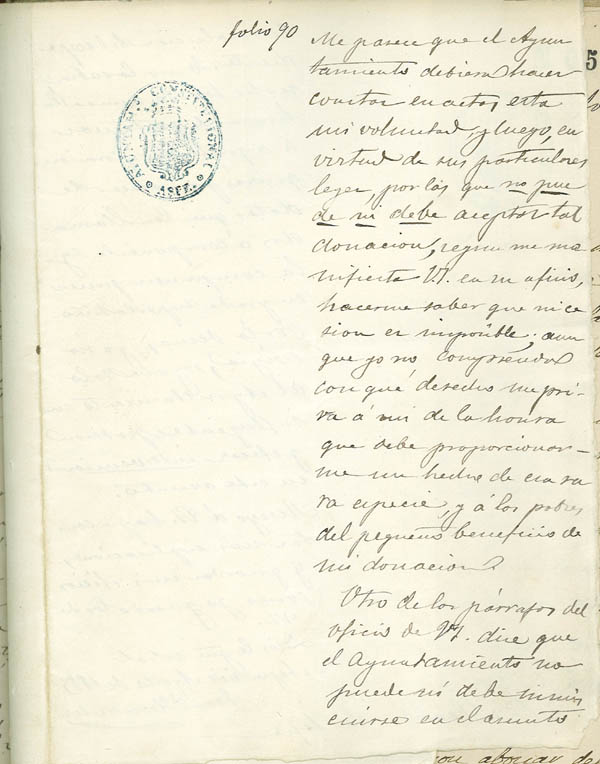 folio 90
Me parece que el Ayun
tamiento debiera hacer
constar en actas esta
mi voluntad, y luego, en
virtud de sus particulares
leyes, por las que no pue
de ni debe aceptar tal
donacion, segun me ma
nifiesta V.I. en su oficio,
hacerme saber que mi ce
sion es imposible; aun
que yo no comprenda
con qué derecho me pri-
va á mi de la honra
que debe proporcionar-
me un hecho de esa ra
ra especie, y á los pobres
del pequeño beneficio de
mi donacion.
Otro de los párrafos del
oficio de V.I. dice que
el Ayuntamiento no
puede ni debe inmis
cuirse en el asunto
ALCALDIA CONSTITUCIONAL
ASPE
5
con abonar de